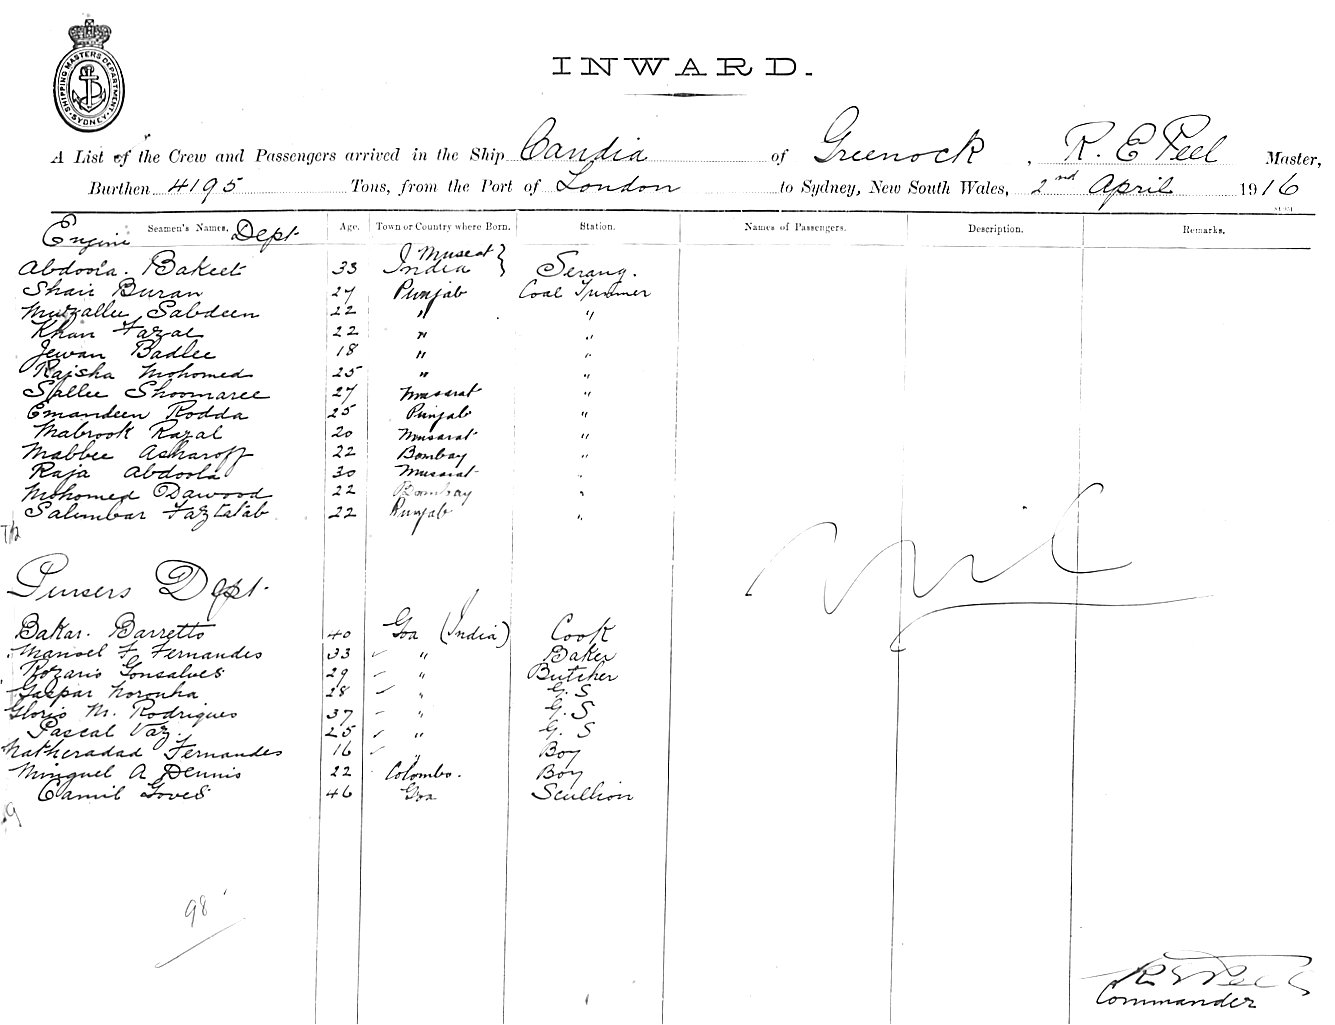 SHIPPING MASTERS DEPARTMENT SYDNEY
INWARD.
A List of the Crew and Passengers arrived in the Ship Candia of Greenock, R. E Peel Master,
Burthen 4195 Tons, from the Port of London to Sydney, New South Wales, 2nd April 1916
Seamen's Names. Age. Town or Country where Born. Station. Names of Passengers. Description. Remarks.
Engine Dept
Abdoola. Bakeet 33 Muscat India } Serang.
Shair Buran 27 Punjab Coal Trimmer
Muzallee Sabdeen 22 " "
Khan Fazal 22 " "
Jewan Badlee 18 " "
Rajsha Mohomed 25 " "
Sallee Shoomaree 27 Muscat "
Emandeen Rodda 25 Punjab "
Mabrook Razal 20 Muscat "
Mabbee Asharoff 22 Bombay "
Raja Abdoola 30 Muscat "
Mohomed Dawood 22 Bombay "
Salimbar 22 Punjab "
Nil
Pursers Dept.
Bakar. Barretto 40 Goa (India) Cook
Manoel F Fernandes 33 " Baker
Rozario Gonsalves 29 " Butcher
Gaspar Noronha 28 " G. S
Glorio M. Rodrigues 37 " G. S
Pascal Vaz. 25 " G. S
Natheradad Fernandes 16 " Boy
Minguel A Dennis 22 Colombo. Boy
Camil Goves 46 Goa Scullion
98
R E Peel
Commander